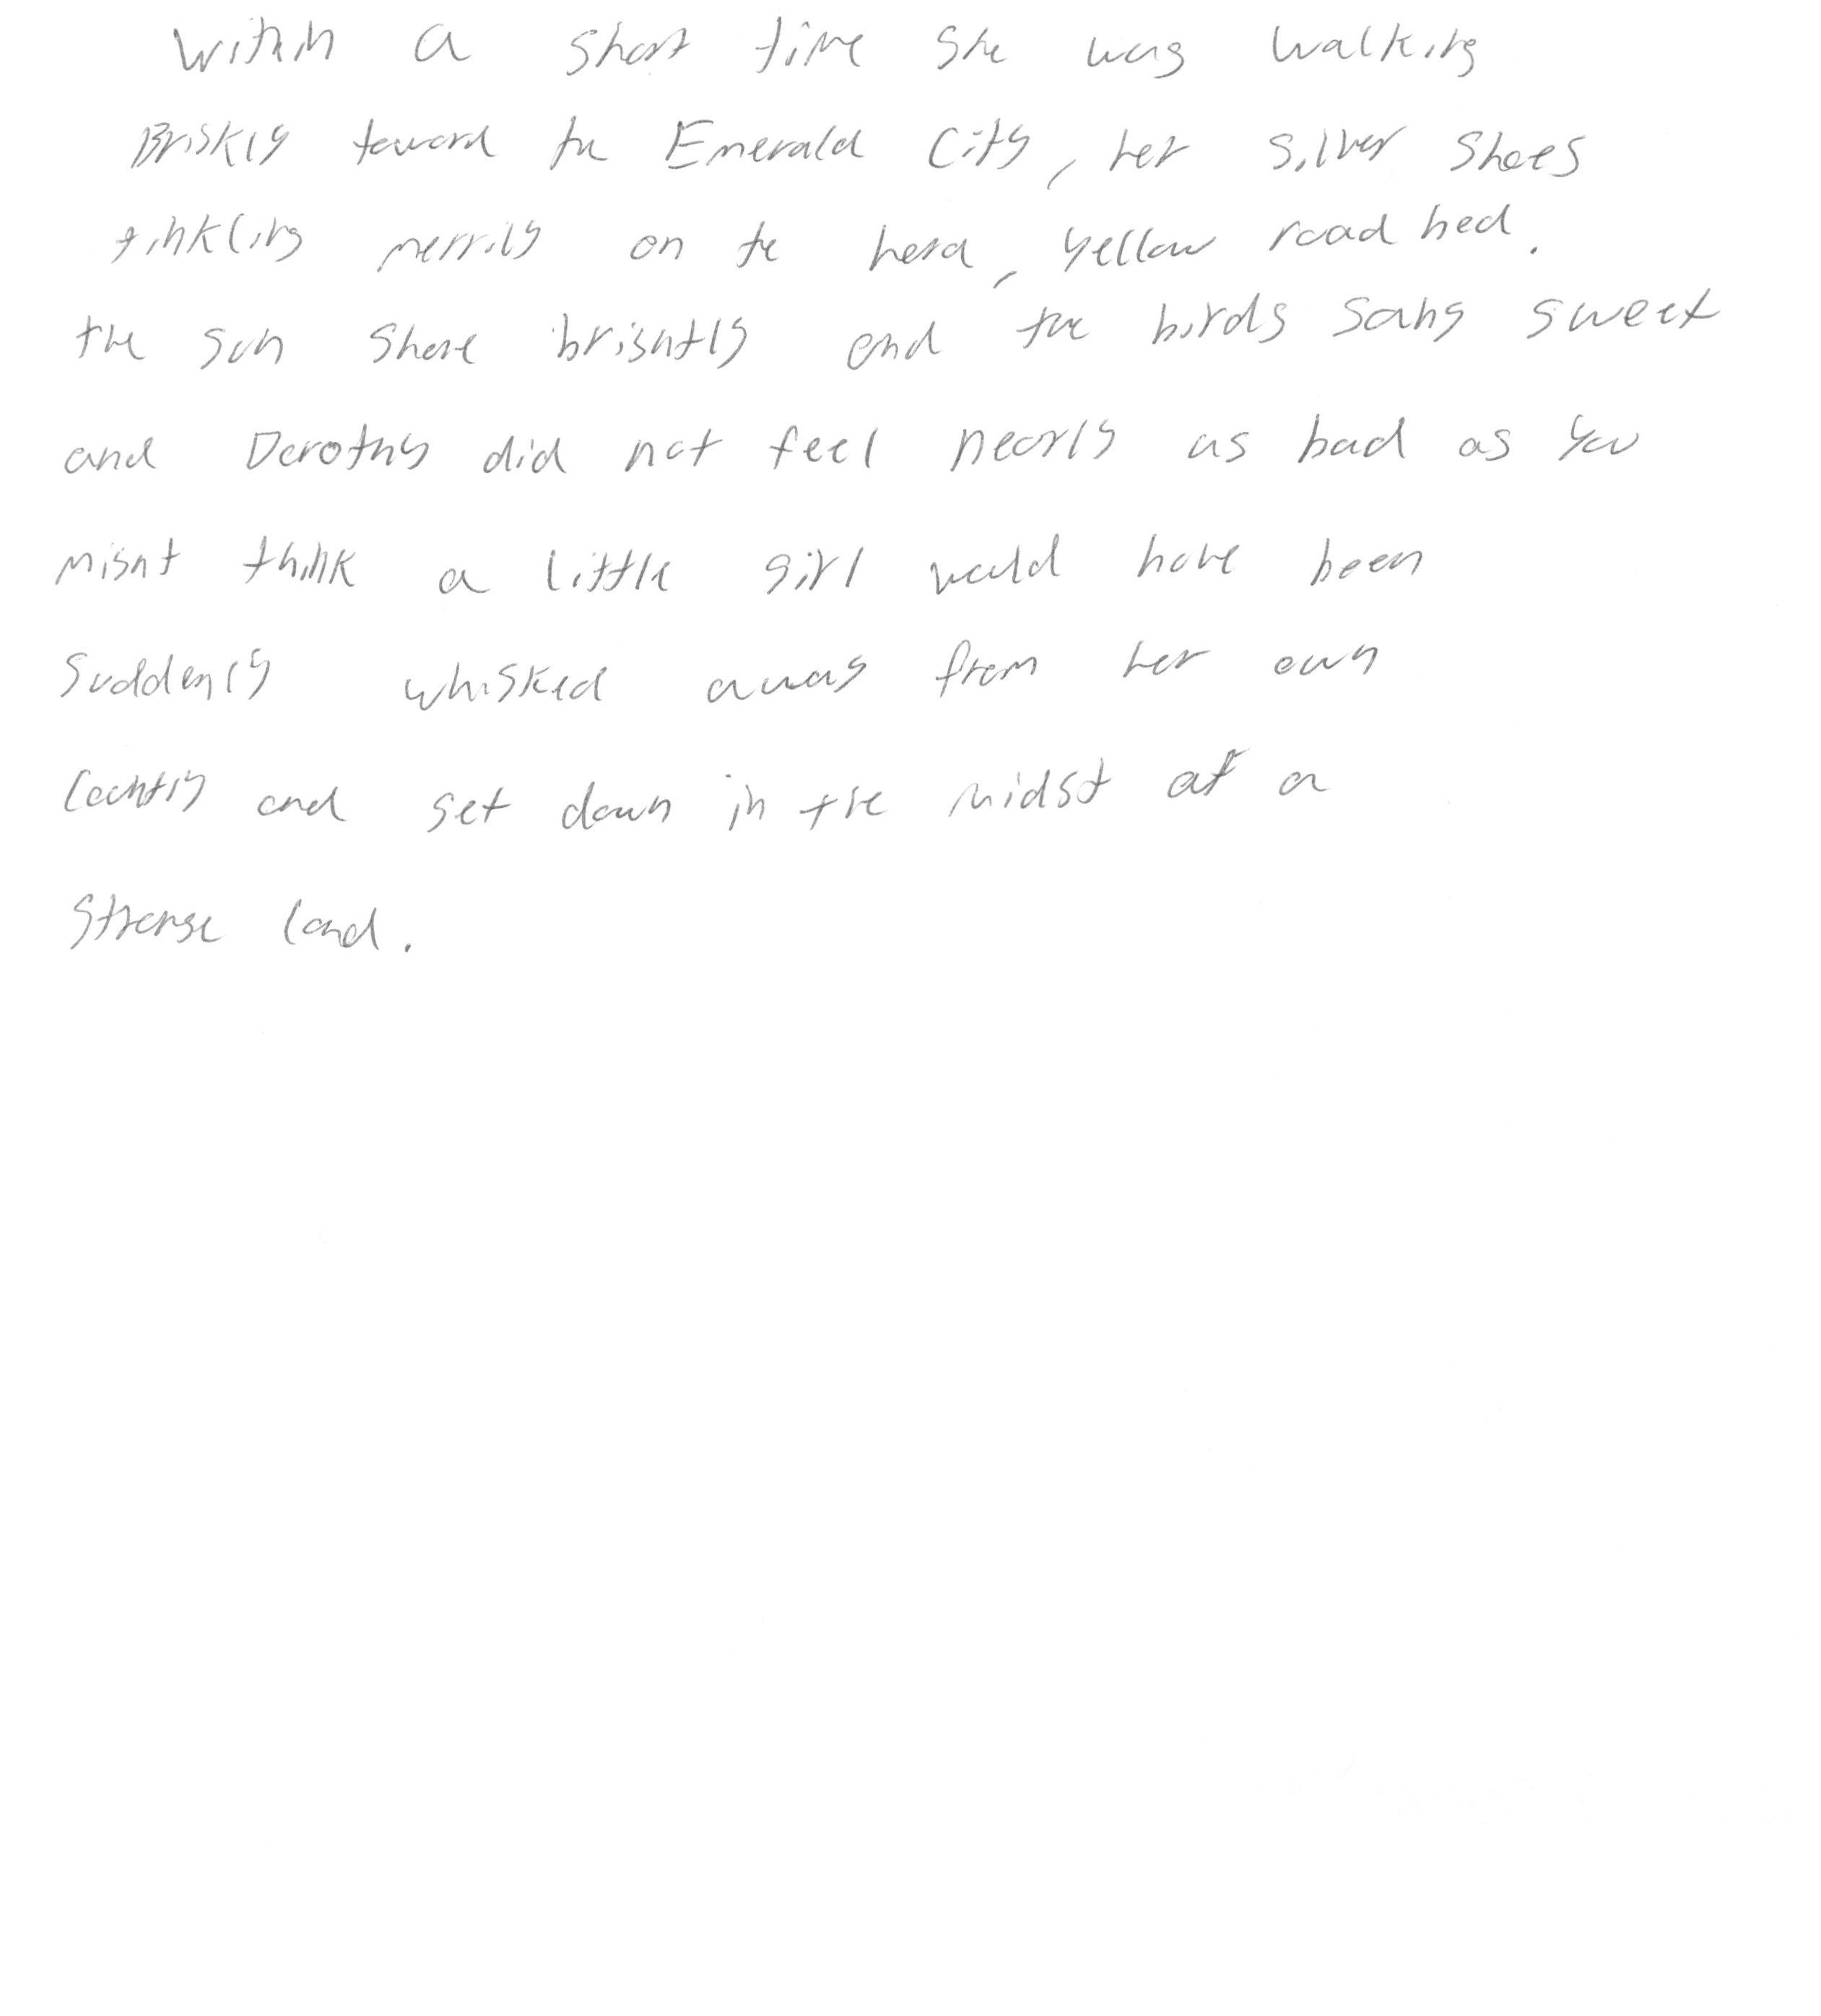 Within a short time she was walking
Briskly toward the Emerald City, her silver shoes
tinkling merrily on the hard, yellow road bed.
the sun shone brightly and the birds sang sweet
and Dorothy did not feel nearly as bad as you
might think a little girl would have been
suddenly whisked away from her own
country and set down in the midst of a
strange land.